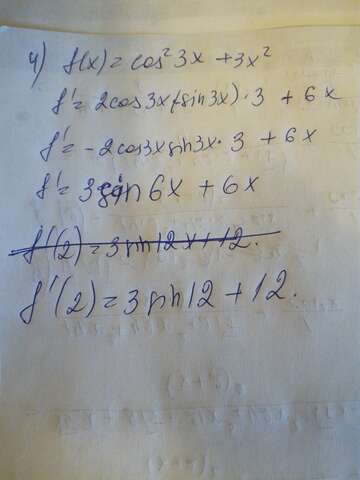 4) f(x) = cos²3x + 3x²
f' = 2cos3x(-sin3x)·3 + 6x
f' = -2cos3x sin3x·3 + 6x
f' = 3sin6x + 6x
f'(2) = 3sin12x + 12.
f'(2) = 3sin12 + 12.